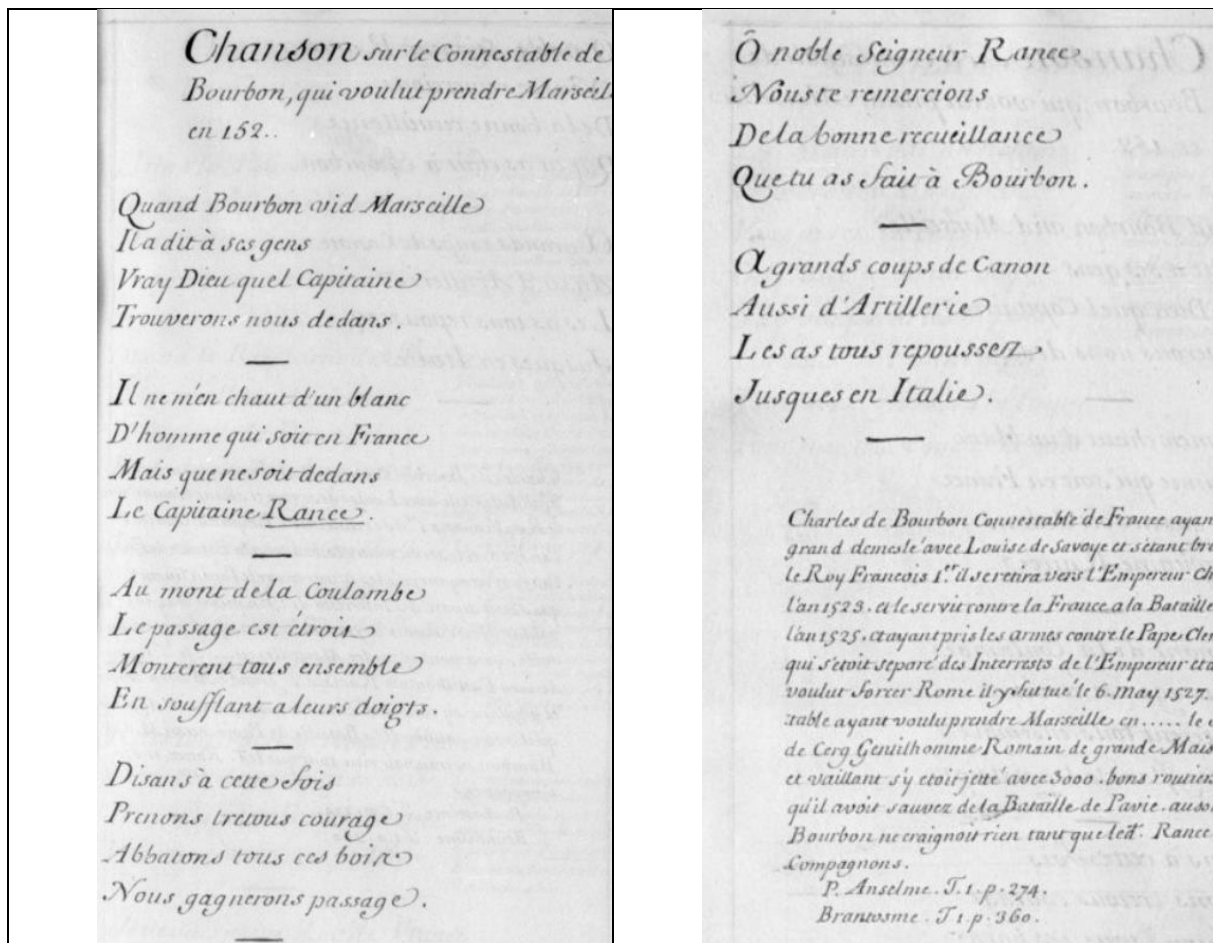 Chanson sur le Connestable de
Bourbon, qui voulut prendre Marseil
en 152..
Quand Bourbon vid Marseille
Il a dit à ses gens
Vray Dieu quel Capitaine
Trouverons nous dedans.
Il ne m'en chaut d'un blanc
D'homme qui soit en France
Mais que ne soit dedans
Le Capitaine Rance.
Au mont de la Coulombe
Le passage est étroit
Monterent tous ensemble
En soufflant a leurs doigts.
Disans à cette fois
Prenons tretous courage
Abbatons tous ces bois
Nous gagnerons passage.
Ô noble Seigneur Rance
Nous te remercions
De la bonne recueillance
Que tu as fait à Bourbon.
A grands coups de Canon
Aussi d'Artillerie
Les as tous repoussez
Jusques en Italie.
Charles de Bourbon Connestable de France ayan
grand demeslé avec Louise de Savoye et s'étant bro
le Roy François 1er il se retira vers l'Empereur Ch
l'an 1523. et le servit contre la France a la Bataille
l'an 1525. et ayant pris les armes contre le Pape Cle
qui s'étoit separé des Interrests de l'Empereur et
voulut forcer Rome il y fut tué le 6. May 1527.
table ayant voulu prendre Marseille en ..... le
de Cerq Gentilhomme Romain de grande Mais
et vaillant s'y etoit jetté avec 3000. bons routiers
qu'il avoit sauvez de la Bataille de Pavie. au
Bourbon ne craignoit rien tant que led. Rance
Compagnons.
P. Anselme. T. 1. p. 274.
Brantosme. T. 1. p. 360.